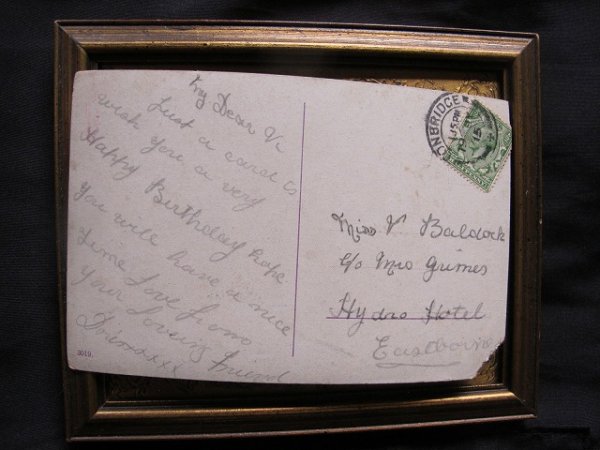 My Dear Vi
Just a card to
wish you a very
Happy Birthday hope
you will have a nice
time Love from
your Loving friend
xxx
3019.
ONBRIDGE
15
Miss V Baldock
c/o Mrs Grimes
Hydro Hotel
Eastborne